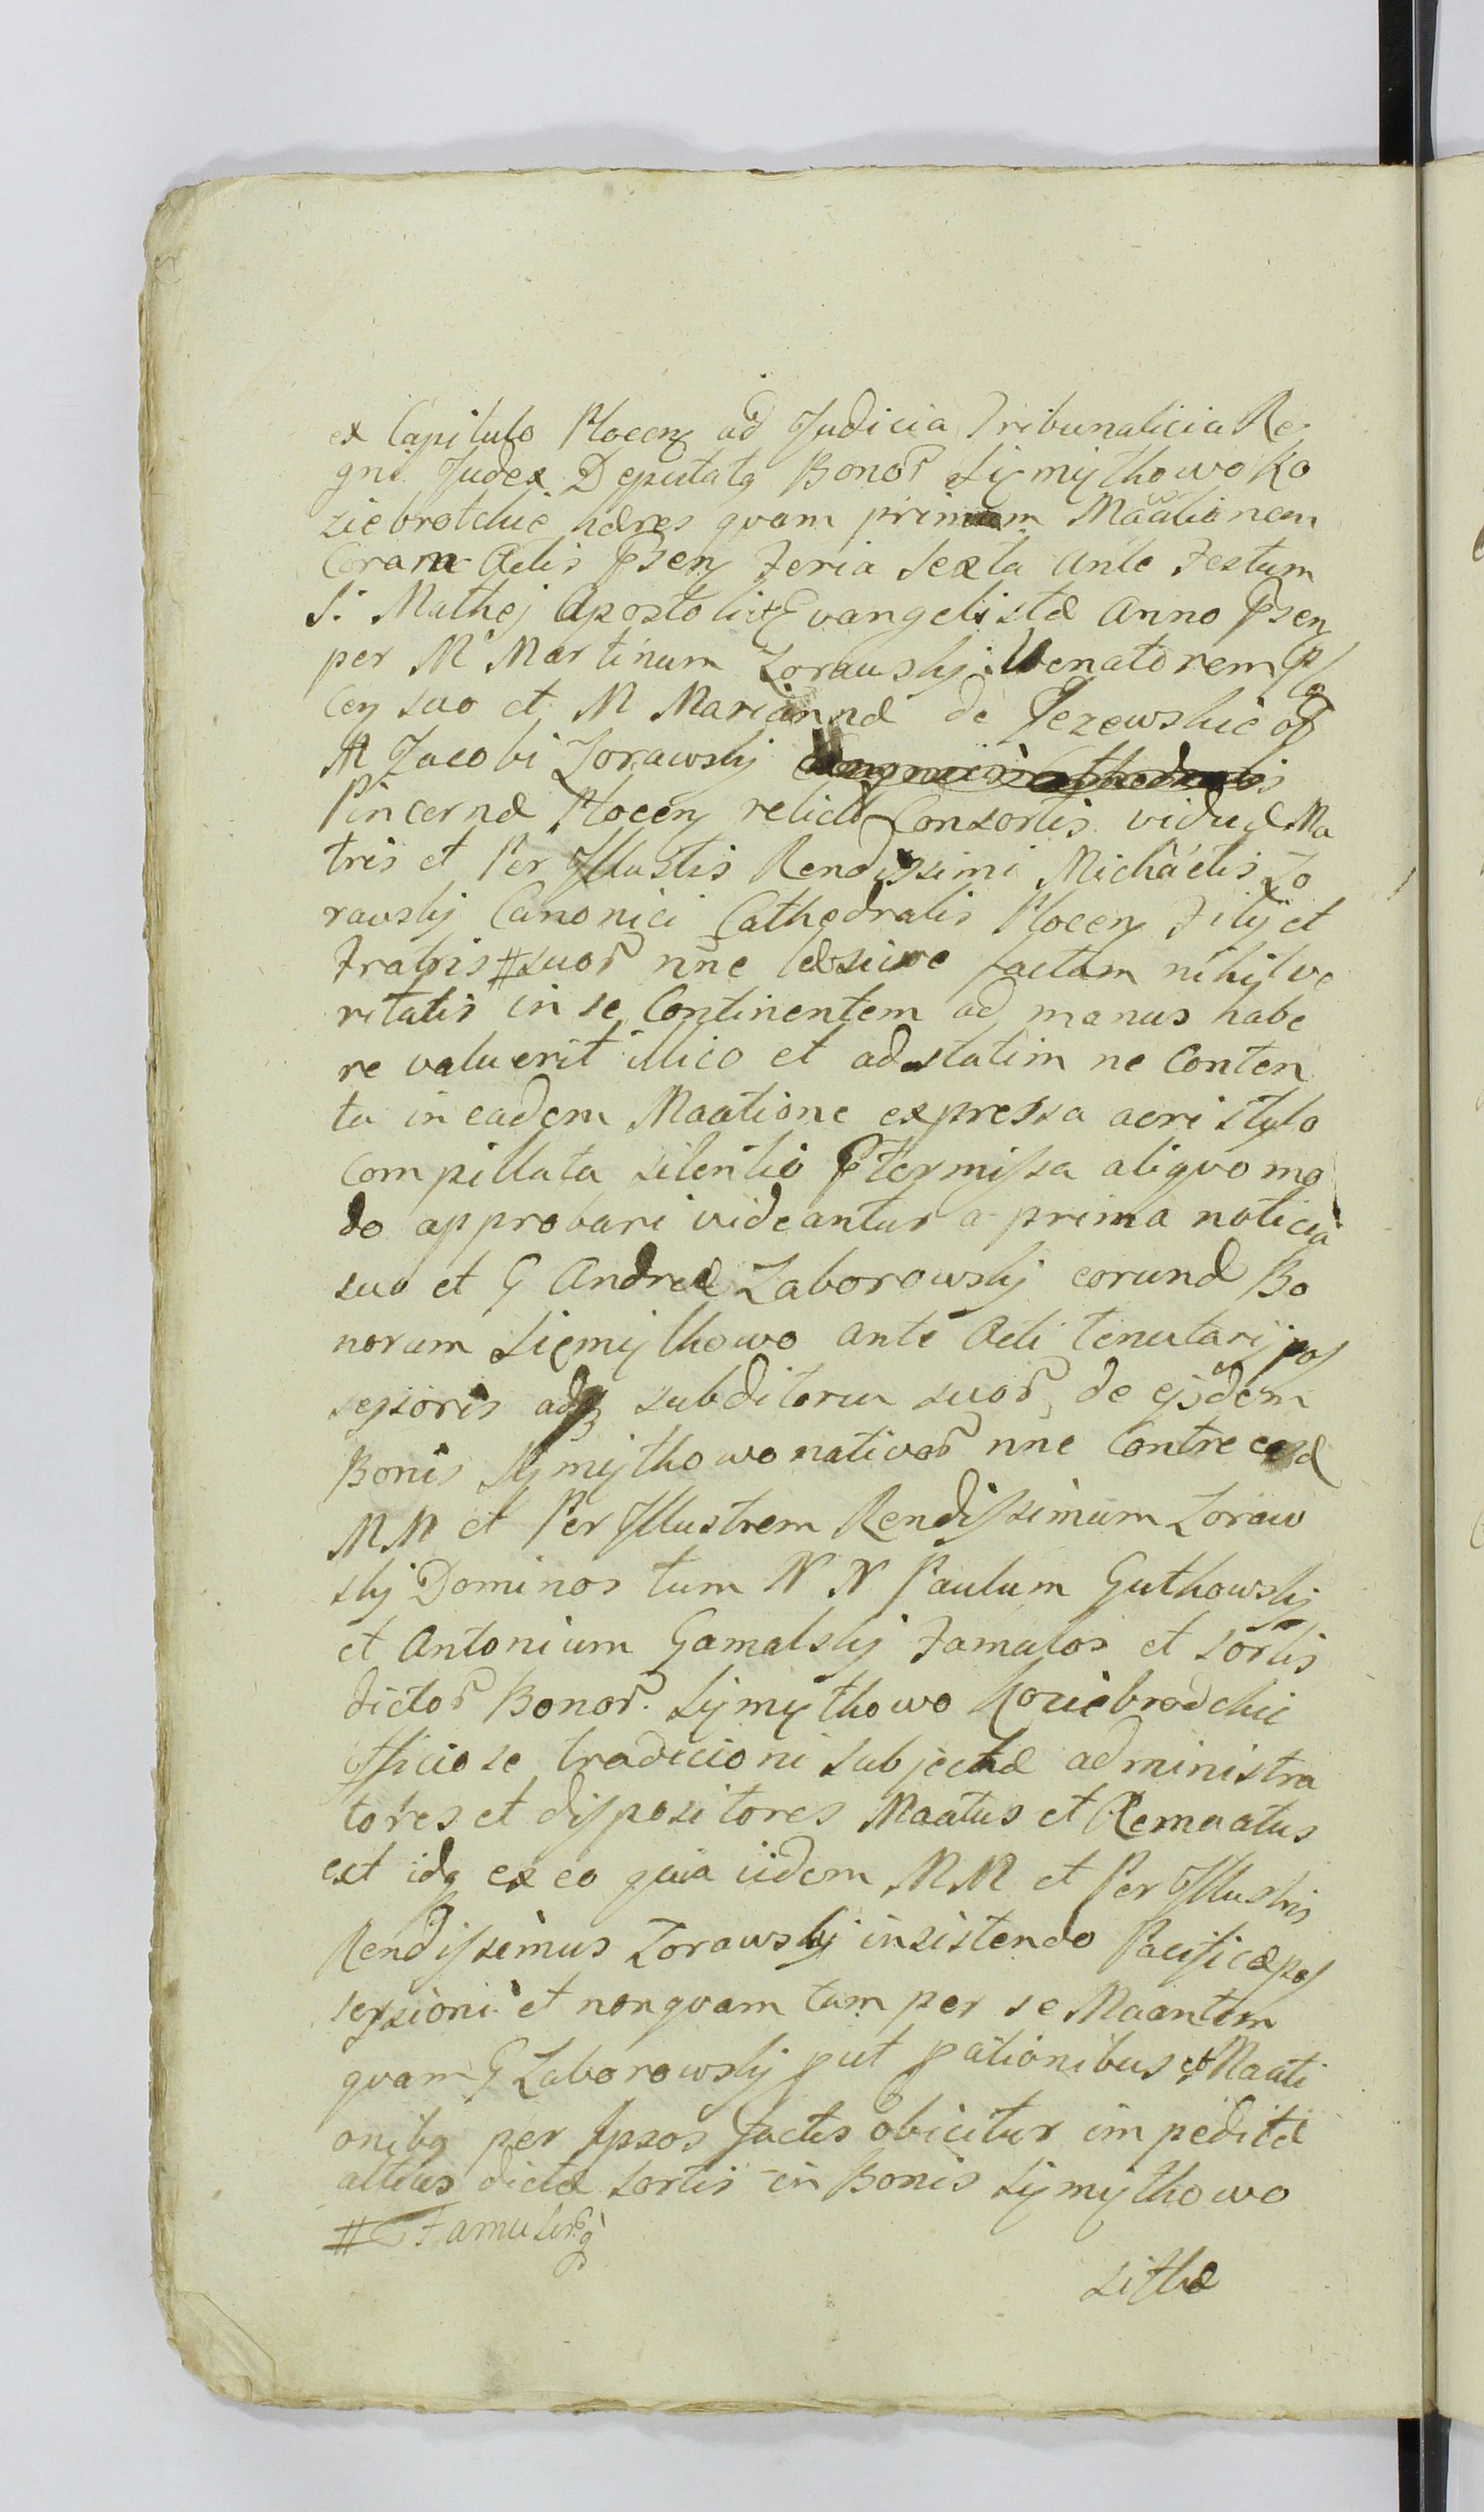 ex Capitulo Plocen ad Judicia Tribunalicia Re-
gni Judex Deputatq Bonor Symythowo Ko
ziebrotchie hæres quam primum Maationem
Coram Actis Psen Feria Sexta ante Festum
S. Mathej Apostoli et Evangelistæ Anno Psen
per M Martinum Zorawskj Venatorem Plo
cen suo et M Mariannæ de Jezewskie olj
M Jacobi Zorawskj
Pincernæ Plocen relictæ Consortis viduæ Ma
tris et Per Illustis Rendissimi Michaelis Zo
rawskj Canonici Cathedralis Plocen Filij et
Fratris # suor nne læsive factam nihil ve
ritatis in se Continentem ad manus habe
re valuerit illico et adstatim ne Conten
ta in eadem Maatione expressa acri stylo
Compillata silentio Ptermissa aliquo mo
do approbari videantur a prima noticia
suo et G Andreæ Zaborowskj eorund Bo
norum Siemythowo ante Acti tenutarij pos
sessoris adq subditorum suor de ejsdem
Bonis Symythowo nativor nne Contre eosd
MM et Per Illustrem Rendissimum Zoraw
skj Dominos tum N N Paulum Guthowskj
et Antonium Gamalskj Famulos et sortis
dictor Bonor. Symythowo Koziebrodchie
officiose tradicioni subjectæ administra
tores et dispositores Maatus et Remaatus
est idq ex eo quia iidem MM et Per Illustris
Rendissimus Zorawskj insistendo Pacificæ pos
sessioni et nonquam tam per se Maantem
quam G Zaborowskj put pationibus et Maati
onibq per Ipsos factis obicitur impeditæ
altius dictæ sortis in Bonis Symythowo
# Famulorq
sithæ